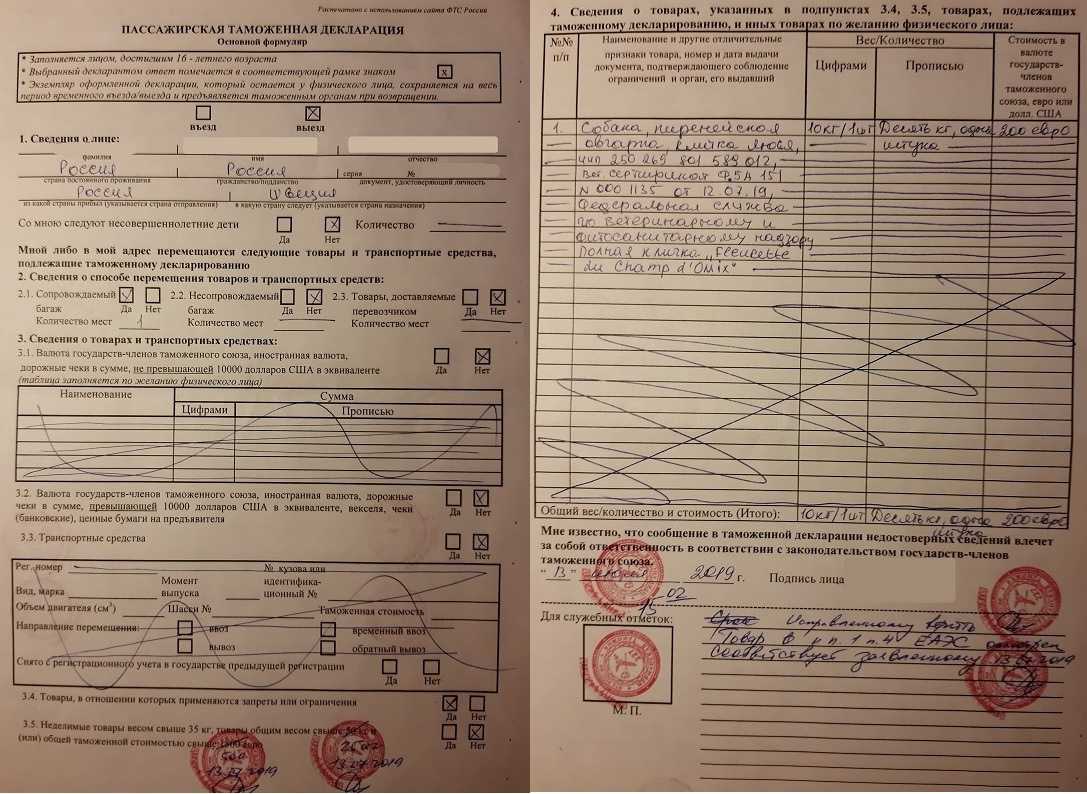 Распечатано с использованием сайта ФТС России
ПАССАЖИРСКАЯ ТАМОЖЕННАЯ ДЕКЛАРАЦИЯ
Основной формуляр
* Заполняется лицом, достигшим 16 - летнего возраста
* Выбранный декларантом ответ помечается в соответствующей рамке знаком x
* Экземпляр оформленной декларации, который остается у физического лица, сохраняется на весь
период временного въезда/выезда и предъявляется таможенным органам при возвращении.
въезд выезд
1. Сведения о лице:
фамилия имя отчество
Россия Россия серия №
страна постоянного проживания гражданство/подданство документ, удостоверяющий личность
Россия Швеция
из какой страны прибыл (указывается страна отправления) в какую страну следует (указывается страна назначения)
Со мною следуют несовершеннолетние дети Да Нет Количество
Мной либо в мой адрес перемещаются следующие товары и транспортные средства,
подлежащие таможенному декларированию
2. Сведения о способе перемещения товаров и транспортных средств:
2.1. Сопровождаемый 2.2. Несопровождаемый 2.3. Товары, доставляемые
багаж Да Нет багаж Да Нет перевозчиком Да Нет
Количество мест 1 Количество мест Количество мест
3. Сведения о товарах и транспортных средствах:
3.1. Валюта государств-членов таможенного союза, иностранная валюта,
дорожные чеки в сумме, не превышающей 10000 долларов США в эквиваленте Да Нет
(таблица заполняется по желанию физического лица)
Наименование Сумма
Цифрами Прописью
3.2. Валюта государств-членов таможенного союза, иностранная валюта, дорожные
чеки в сумме, превышающей 10000 долларов США в эквиваленте, векселя, чеки
(банковские), ценные бумаги на предъявителя Да Нет
3.3. Транспортные средства Да Нет
Рег. номер № кузова или
Вид, марка Момент выпуска идентифика-ционный №
Объем двигателя (см3) Шасси № Таможенная стоимость
Направление перемещения: ввоз временный ввоз
вывоз обратный вывоз
Снято с регистрационного учета в государстве предыдущей регистрации
Да Нет
3.4. Товары, в отношении которых применяются запреты или ограничения Да Нет
3.5. Неделимые товары весом свыше 35 кг, товары общим весом свыше 50 кг и
(или) общей таможенной стоимостью свыше 1500 евро Да Нет
13.07.2019 13.07.2019
4. Сведения о товарах, указанных в подпунктах 3.4, 3.5, товарах, подлежащих
таможенному декларированию, и иных товарах по желанию физического лица:
№№ п/п
Наименование и другие отличительные
признаки товара, номер и дата выдачи
документа, подтверждающего соблюдение
ограничений и орган, его выдавший
Вес/Количество
Цифрами Прописью
Стоимость в
валюте
государств-
членов
таможенного
союза, евро или
долл. США
1. Собака, пиренейская 10кг/1шт Десять кг, одна 200 евро
овчарка, кличка Люся, штука
чип 250 269 801 589 012,
Вет. сертификат Ф.5А 151
N 0001135 от 12.07.19,
Федеральная служба
по ветеринарному и
фитосанитарному надзору
Полная кличка
du Champ d'Omix"
Общий вес/количество и стоимость (Итого): 10кг/1шт Десять кг, одна 200 евро
штука
Мне известно, что сообщение в таможенной декларации недостоверных сведений влечет
за собой ответственность в соответствии с законодательством государств-членов
таможенного союза.
" 13 " июля 2019 г. Подпись лица
15 02
Для служебных отметок: Исправленному верить
Товар в гр. 1 п.4 ЕАЭС
соответствует заявленному 13.07.2019
М. П.